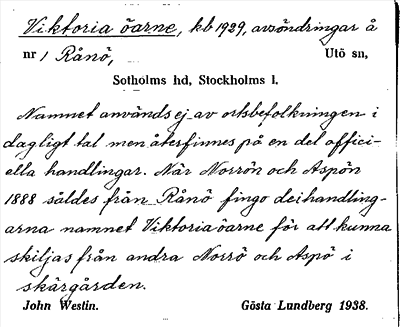 Viktoria öarne, kb 1929, avsöndringar å
nr 1 Rånö, Utö sn,
Sotholms hd, Stockholms l.
Namnet användes ej av ortsbefolkningen i
dagligt tal men återfinnes på en del offici-
ella handlingar. När Norrön och Aspön
1888 såldes från Rånö fingo de i handling-
arna namnet Viktoria öarne för att kunna
skiljas från andra Norrö och Aspö i
skärgården.
John Westin. Gösta Lundberg 1938.